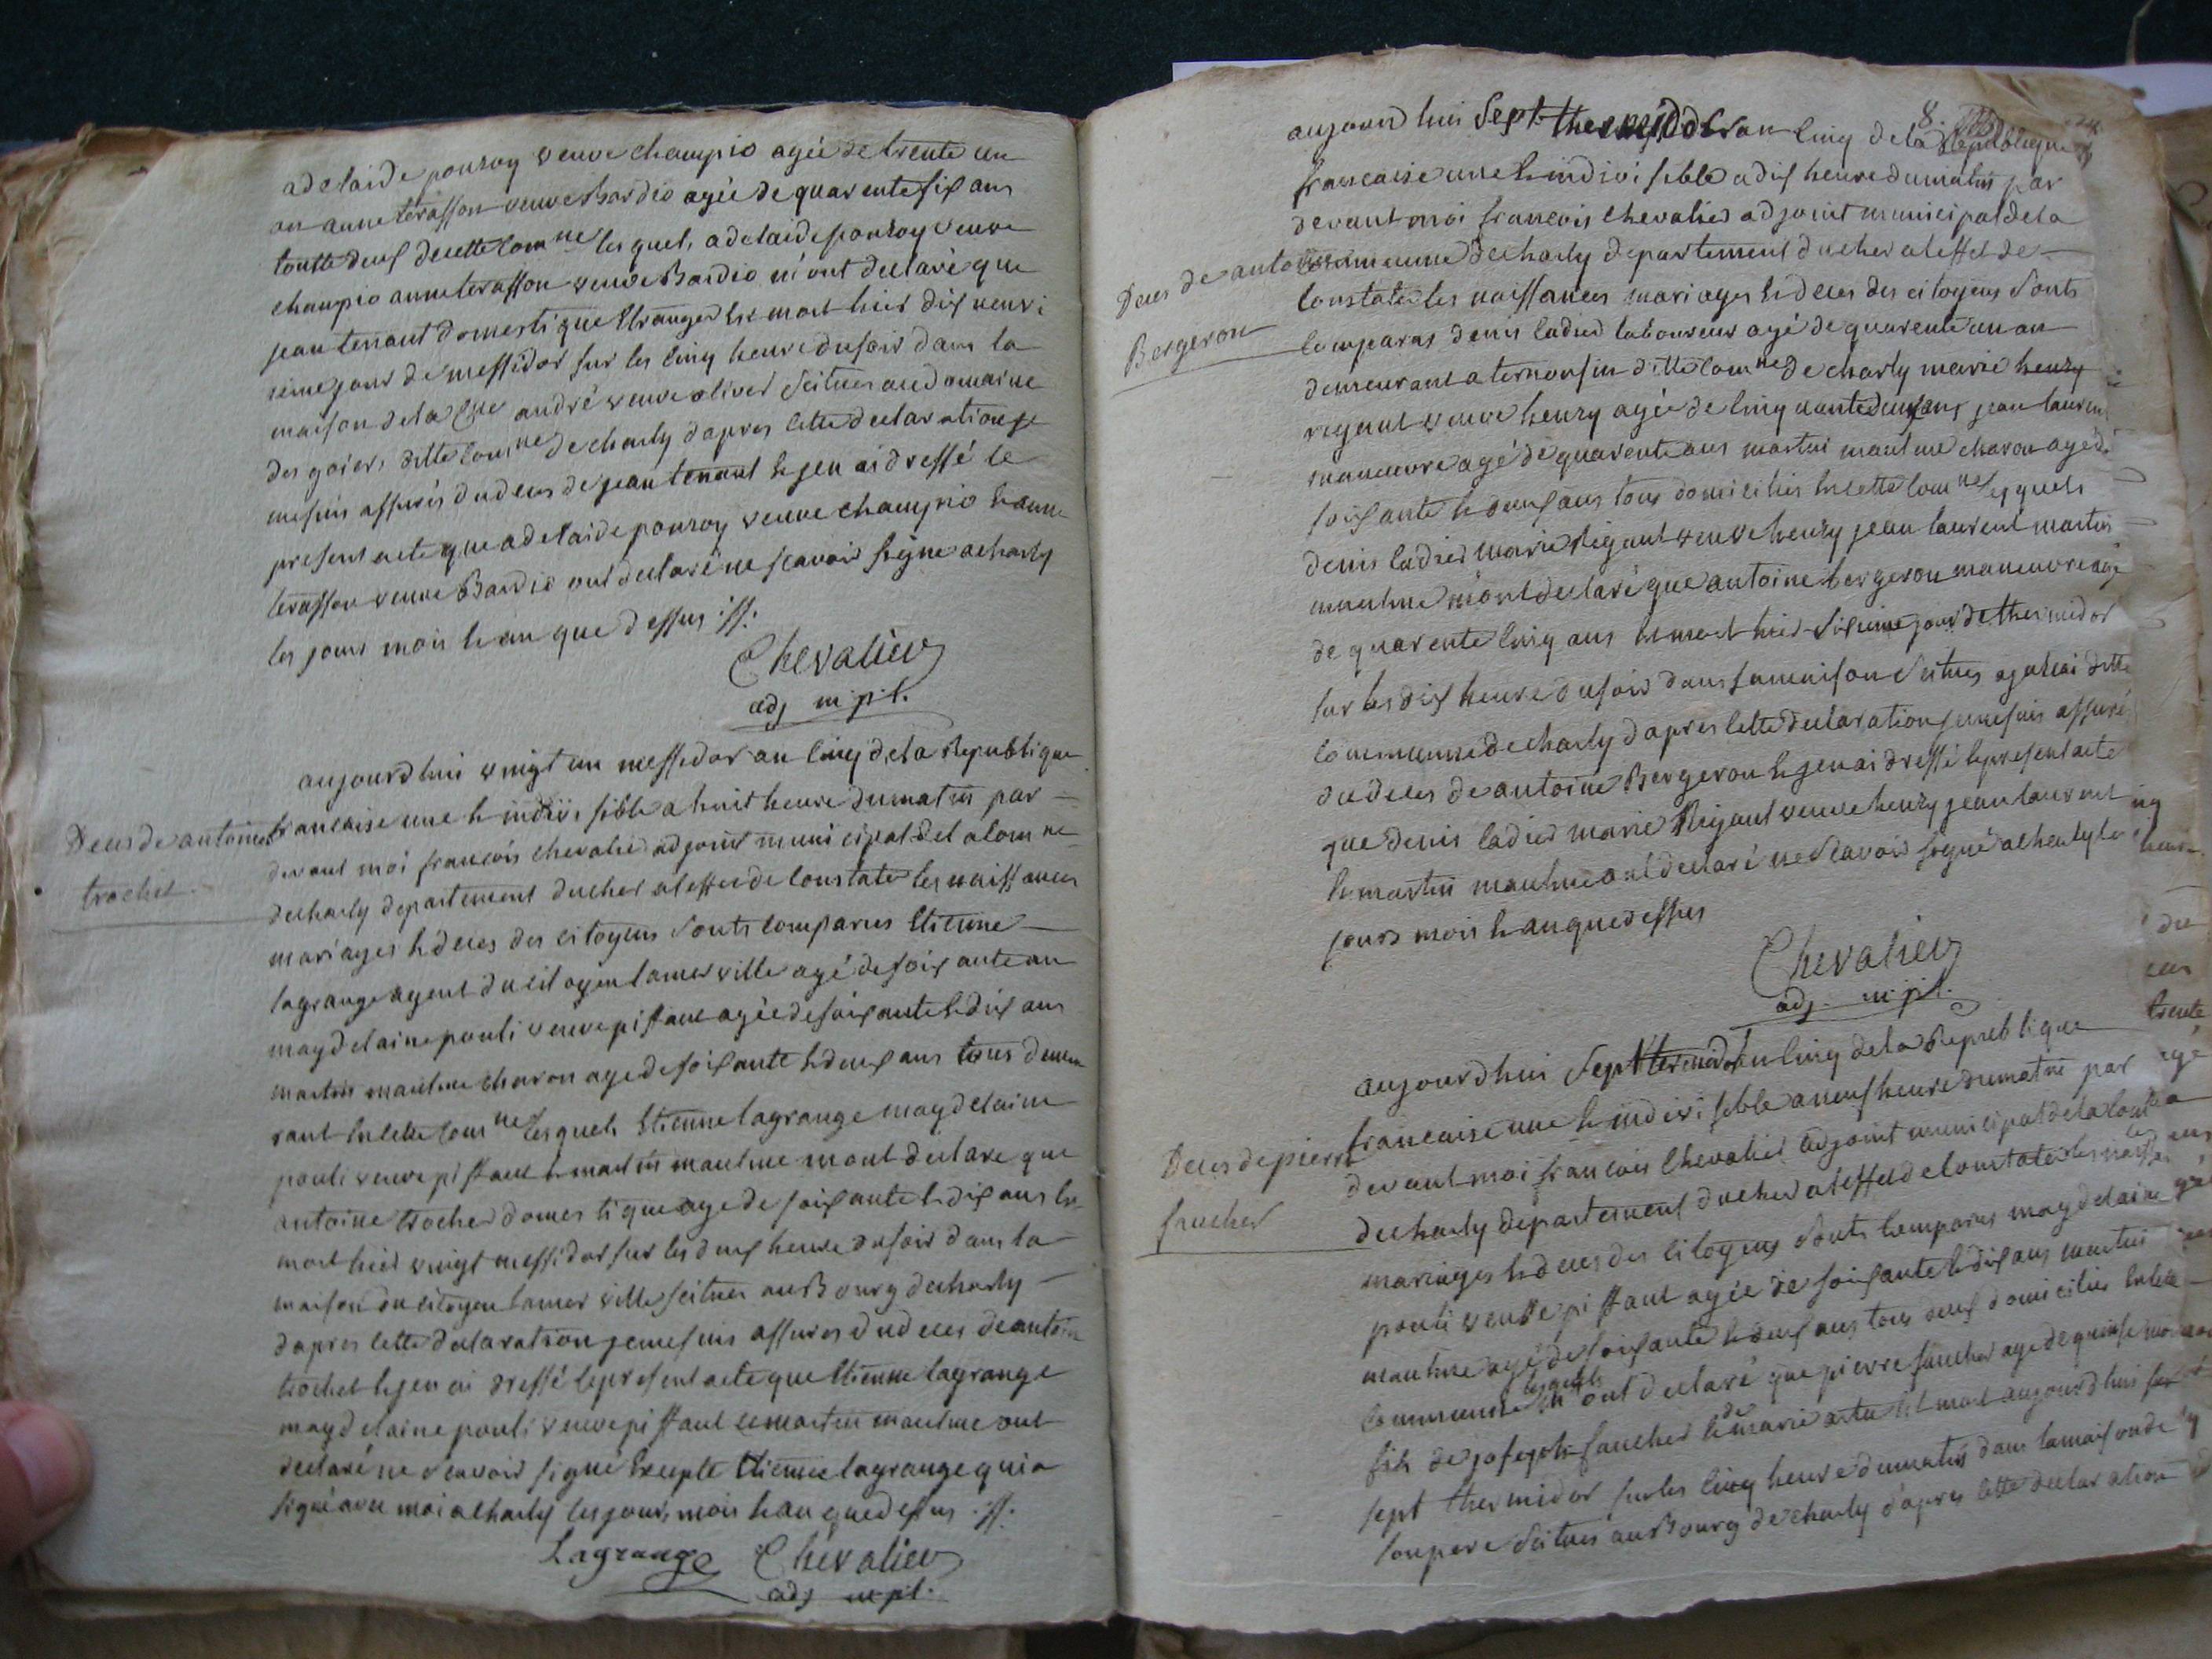 adelaide ponroy veuve champio agée de trente un
an anne terasson veuve Bardio agée de quarente six ans
toutte deux de cette comne lesquel, adelaide ponroy veuve
champio anne terasson veuve Bardio m'ont declaré que
jean tenant domestique Etranger Est mort hier dix neuvi
ieme jour de messidor sur les cinq heure du soir dans la
maison de la Cne andré veuve oliver scitues au domaine
des goier, ditte comne de charly dapres cette declaration je
me suis assurés du deces de jean tenant & jen ai dressé le
present acte que adelaide ponroy veuve champio & anne
terasson veuve Bardio ont declaré ne scavoir signe a charly
les jours mois & an que dessus
Chevalier
adj mpl.
aujourdhui vingt un messidor an cinq de la Republique
Deces de antoine
trocher
francaise une & indivisible a huit heure du matin par
devant moi francois chevalier adjoint municipal de la comne
de charly departement du cher aleffet de constate les naissances
mariages & deces des citoyens sonts comparus Etienne
lagrange agent du citoyen lamerville agé de soixante an
magdelaine pouli veuve pissaut agée de soixante & dix ans
martin maulme charon age de soixante & deux ans tous demeu
rant En cette comne lesquels Etienne lagrange magdelaine
pouli veuve pissaut & martin maulme mont declare que
antoine trocher domestique age de soixante & dix ans Est
mort hier vingt messidor sur les deux heure du soir dans la
maison du citoyen lamerville scitues au Bourg de charly
dapres cette declaration je me suis assures du deces de antoine
trocher & jen ai dressé le present acte que Etienne lagrange
magdelaine pouli veuve pissaut & martin maulme ont
declaré ne scavoir signé Excepte Etienne lagrange qui a
signé avec moi a charly les jour, mois & an que dessus
Lagrange Chevalier
adj mpl.
8.
aujourd hui sept thermidor an cinq de la Republique
francaise une & indivisible a dix heure du matin par
devant moi francois chevalier adjoint municipal de la
Deces de antoine
Bergeron
commune de charly departement du cher aleffet de
constater les naissances mariages & deces des citoyens sonts
comparus denis ladier laboureur agé de quarente un an
demeurant a ternonsin ditte comne de charly marie henry
regaut veuve henry agée de cinquante deux ans jean laurent
maneuvre agé de quarente ans martin maulme charon agé de
soixante & deux ans tous domicilies En cette comne lesquels
denis ladier marie Rigaut veuve henry jean laurent martin
maulme m'ont declaré que antoine bergeron maneuvre agé
de quarente cinq ans Est mort hier sixieme jour de thermidor
sur les dix heure du soir dans sa maison scitues ditte
commune de charly dapres cette declaration je me suis assurés
du deces de antoine Bergeron & jen ai dressé le present acte
que denis ladier marie Rigaut veuve henry jean laurent
& martin maulme ont declaré ne scavoir signé a charly les
jours mois & an que dessus
Chevalier
adj. mpl.
aujourdhui sept thermidor an cinq de la Republique
francaise une & indivisible a neuf heure du matin par
Deces de pierre
faucher
devant moi francois chevalier adjoint municipal de la comne
de charly departement du cher aleffet de constate les naissan
mariages & deces des citoyens sonts comparus magdelaine
pouli veuve pissaut agée de soixante & dix ans martin
maulme agé de soixante & deux ans tous deux domicilies En cette
commune lesquels m ont declaré que pierre faucher age de quinse mois
fils de joseph faucher & de marie artu Est mort aujourdhui
sept thermidor sur les cinq heure du matin dans la maison de
son pere scitues au Bourg de charly d'apres cette declaration